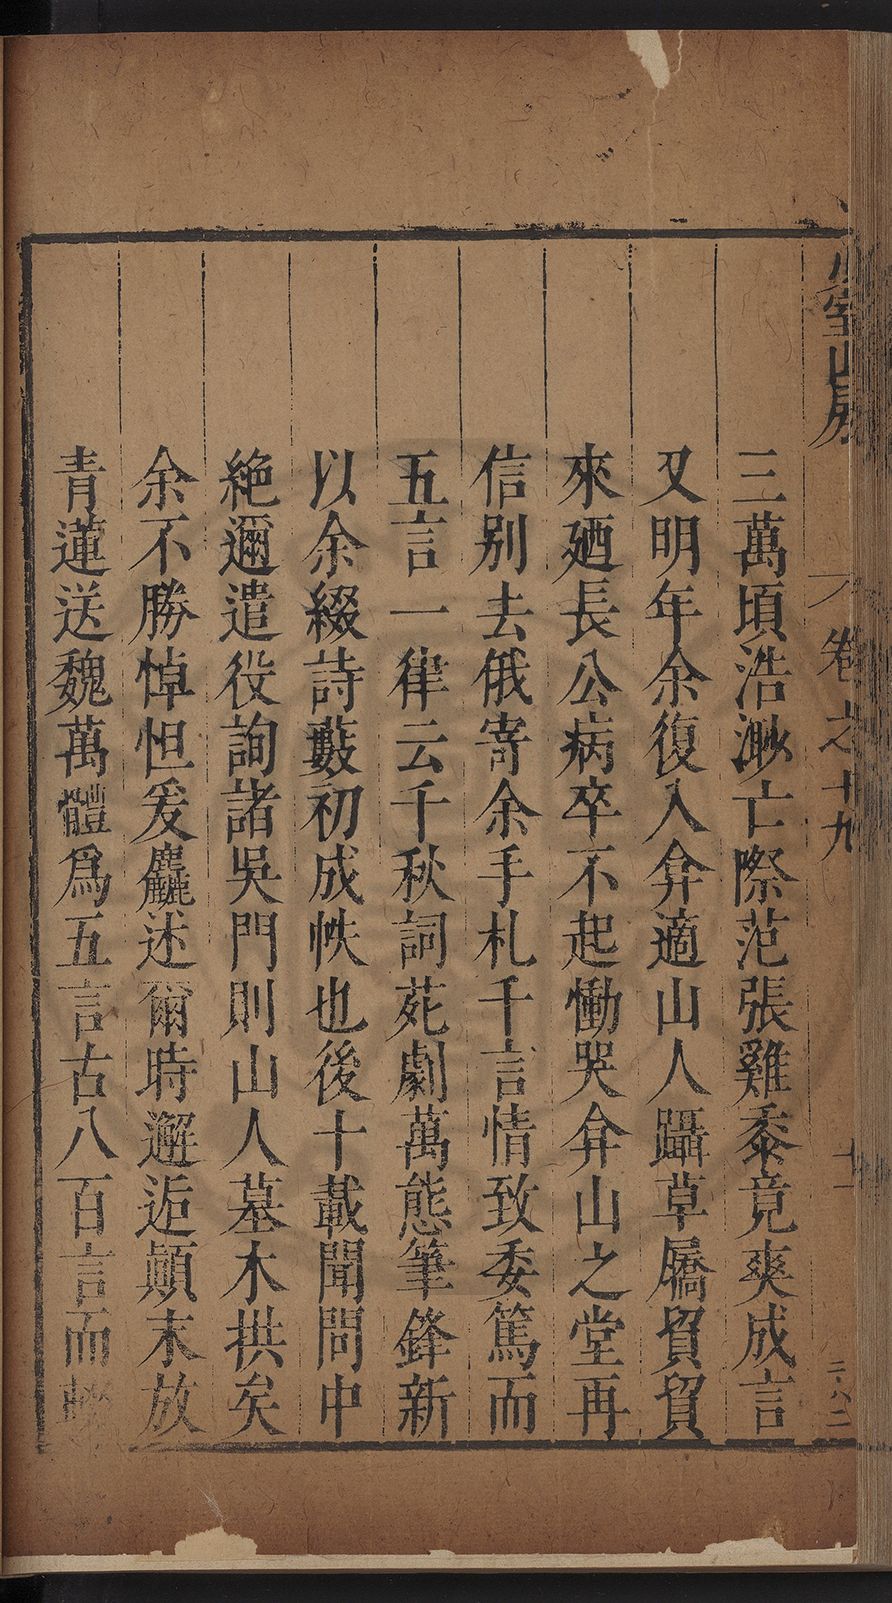 室山房
卷之十九
十一
三萬頃浩渺亡際范張雞黍竟爽成言
又明年余復入弇適山人躡草屩貿貿
來廼長公病卒不起慟哭弇山之堂再
信别去俄寄余手札千言情致委篤而
五言一律云千秋詞苑劇萬態筆鋒新
以余綴詩藪初成帙也後十載聞問中
絶邇遣役詢諸吳門則山人墓木拱矣
余不勝悼怛爰麤述爾時邂逅顛末放
青蓮送魏萬體爲五言古八百言而